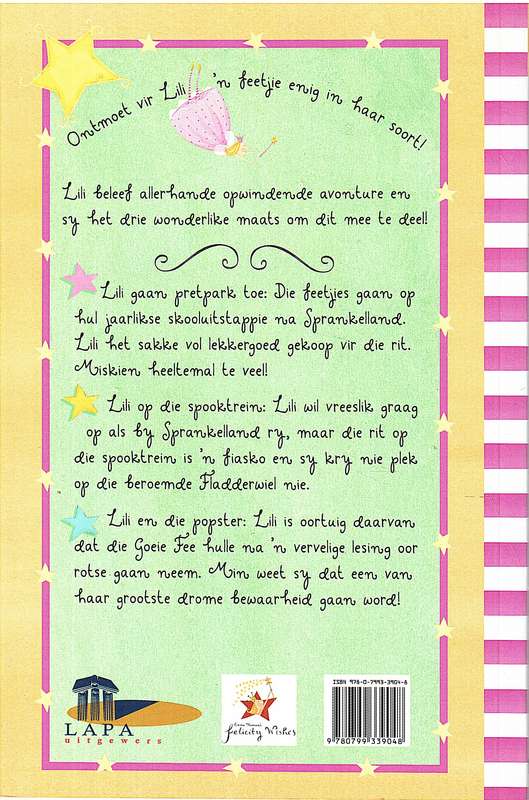 Ontmoet vir Lili 'n feetjie enig in haar soort!
Lili beleef allerhande opwindende avonture en
sy het drie wonderlike maats om dit mee te deel!
Lili gaan pretpark toe: Die feetjies gaan op
hul jaarlikse skooluitstappie na Sprankelland.
Lili het sakke vol lekkergoed gekoop vir die rit.
Miskien heeltemal te veel!
Lili op die spooktrein: Lili wil vreeslik graag
op als by Sprankelland ry, maar die rit op
die spooktrein is 'n fiasko en sy kry nie plek
op die beroemde Fladderwiel nie.
Lili en die popster: Lili is oortuig daarvan
dat die Goeie Fee hulle na 'n vervelige lesing oor
rotse gaan neem. Min weet sy dat een van
haar grootste drome bewaarheid gaan word!
LAPA
uitgewers
Emma Thomson's
Felicity Wishes
ISBN 978-0-7993-3904-8
9 780799 339048